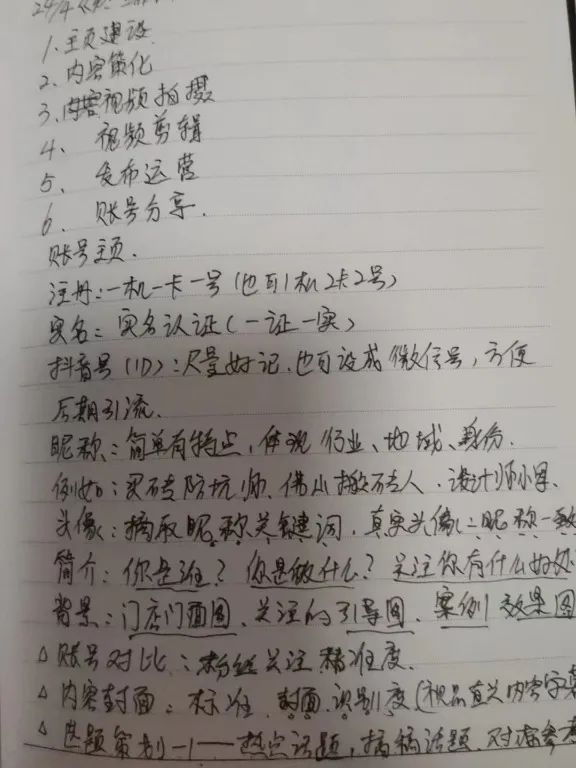 1. 主页建设
2. 内容策化
3. 视频拍摄
4、 视频剪辑
5、 发布运营
6. 账号分享.
账号主页.
注册:一机一卡一号(也可1机2卡2号)
实名:实名认证(一证一实)
抖音号(ID):尽量好记.也可设成微信号,方便
后期引流.
昵称:简单有特点,体现行业、地域、身份.
例如:买砖防坑师、佛山搬砖人、设计师小
头像:摘取昵称关键词,真实头像 昵称一致
简介:你是谁?你是做什么?关注你有什么好处
背景:门店门面图、关注的引导图、案例效果图
△ 账号对比:粉丝关注精准度.
△ 内容封面:标准 封面.识别度(视品直头内容字
△ 选题策划——热点话题,摘稿话题.对标参考